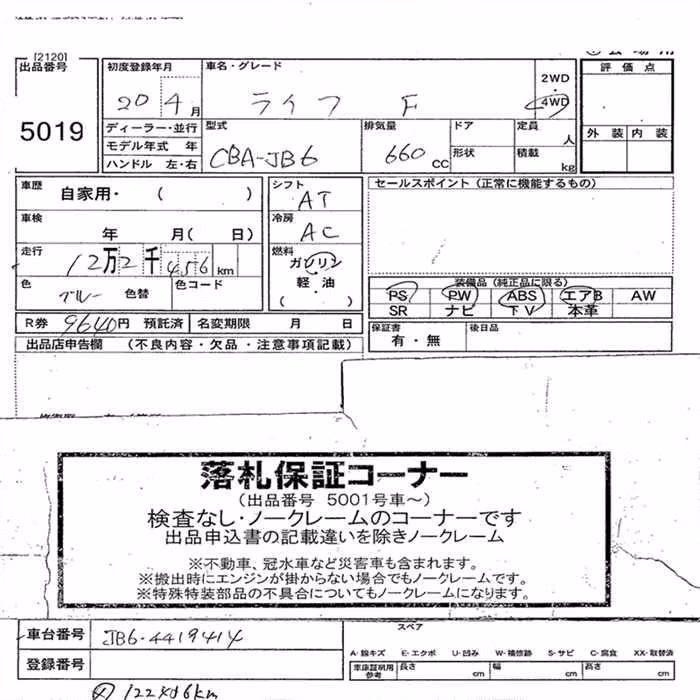 [2120]
出品番号
5019
初度登録年月
20 4月
車名・グレード
ライフ F
2WD
・
4WD
評価点
外装 内装
ディーラー・並行
モデル年式 年
ハンドル 左・右
型式
CBA-JB6
排気量
660 CC
ドア
形状
定員
人
積載
kg
車歴
自家用・ ( )
シフト
AT
セールスポイント (正常に機能するもの)
車検
年 月( 日)
冷房
AC
走行
12万2千456km
燃料
ガソリン
・
軽油
( )
色
ブルー
色替
色コード
装備品 (純正品に限る)
PS PW ABS エアB AW
SR ナビ TV 本革
R券 9640円 預託済 名変期限 月 日
保証書
有・無
後日品
出品店申告欄 (不良内容・欠品・注意事項記載)
落札保証コーナー
(出品番号 5001号車～)
検査なし・ノークレームのコーナーです
出品申込書の記載違いを除きノークレーム
※不動車、冠水車など災害車も含まれます。
※搬出時にエンジンが掛からない場合でもノークレームです。
※特殊特装部品の不具合についてもノークレームになります。
車台番号 JB6-4419414
登録番号
スペア
A-線キズ E-エクボ U-凹み W-補修跡 S-サビ C-腐食 XX-取替済
車庫証明用
参考
長さ cm 幅 cm 高さ cm
122456km